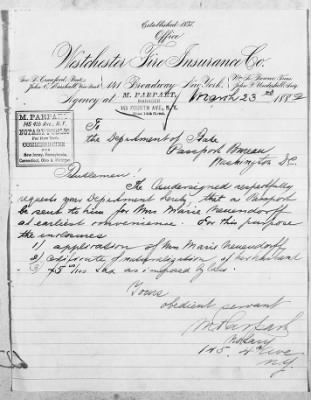 Established 1837.
Office
Westchester Fire Insurance Co.
Geo. R. Crawford, Prest.
John Q. Underhill, Secy
141 Broadway New-York.
Agency at M. PARPART, MANAGER
145 FOURTH AVE., N.Y.
March 23rd 1882
M. PARPART,
145 4th AVE., N.Y.
NOTARY PUBLIC
For New York.
COMMISSIONER
FOR
New Jersey, Pennsylvania,
Connecticut, Ohio & Michigan
To
the Department of State
Passport Bureau
Washington D.C.
Gentlemen!
The Undersigned respectfully
requests your Department hereby that a Passport
be sent to him for Mrs Marie Neuendorff
at earliest convenience. For this purpose
he incloses
1) application of Mrs Marie Neuendorff
2) certificate of naturalization of her husband
3) $5 tax as imposed by law.
Yours
obedient servant
M Parpart
Notary
145. 4th Ave
N.Y.